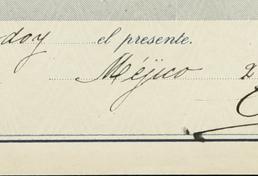 doy el presente.
Méjico 2